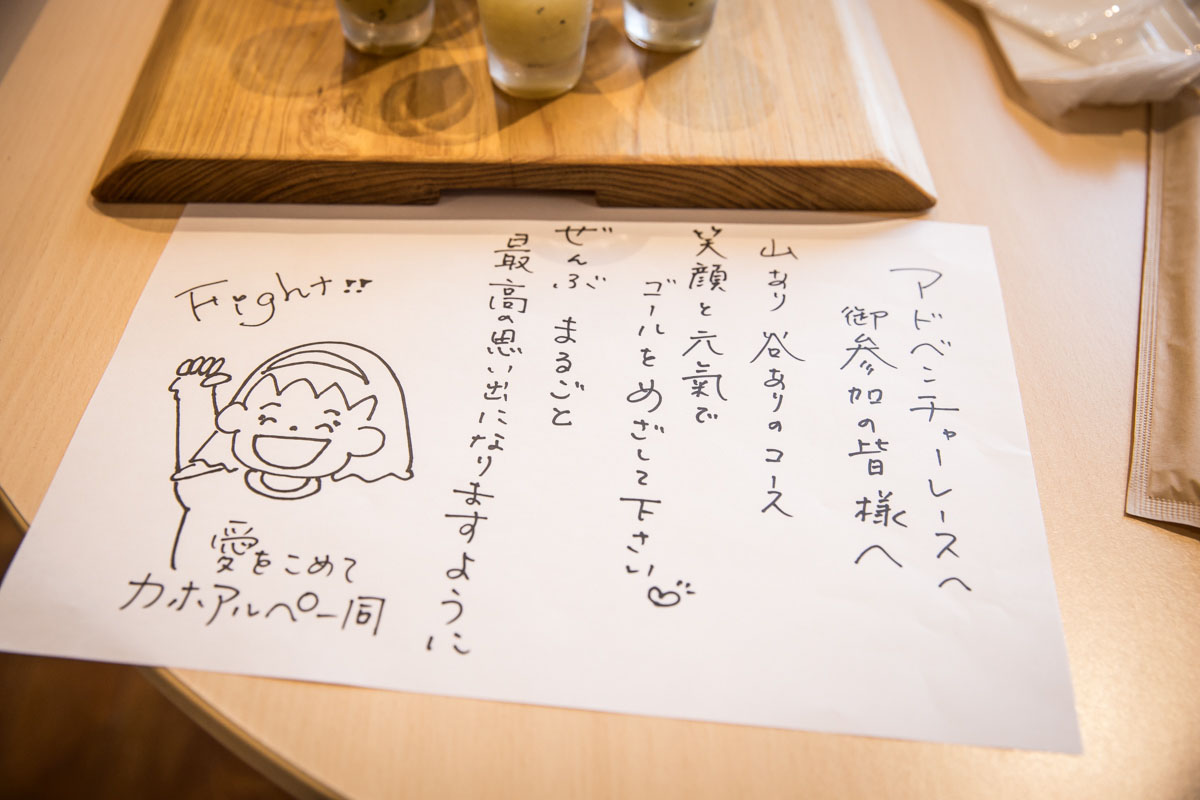 アドベンチャーレースへ
御参加の皆様へ
山あり 谷ありのコース
笑顔と元氣で
ゴールをめざして下さい
ぜんぶ まるごと
最高の思い出になりますように
Fight!!
愛をこめて
カホアルペ一同